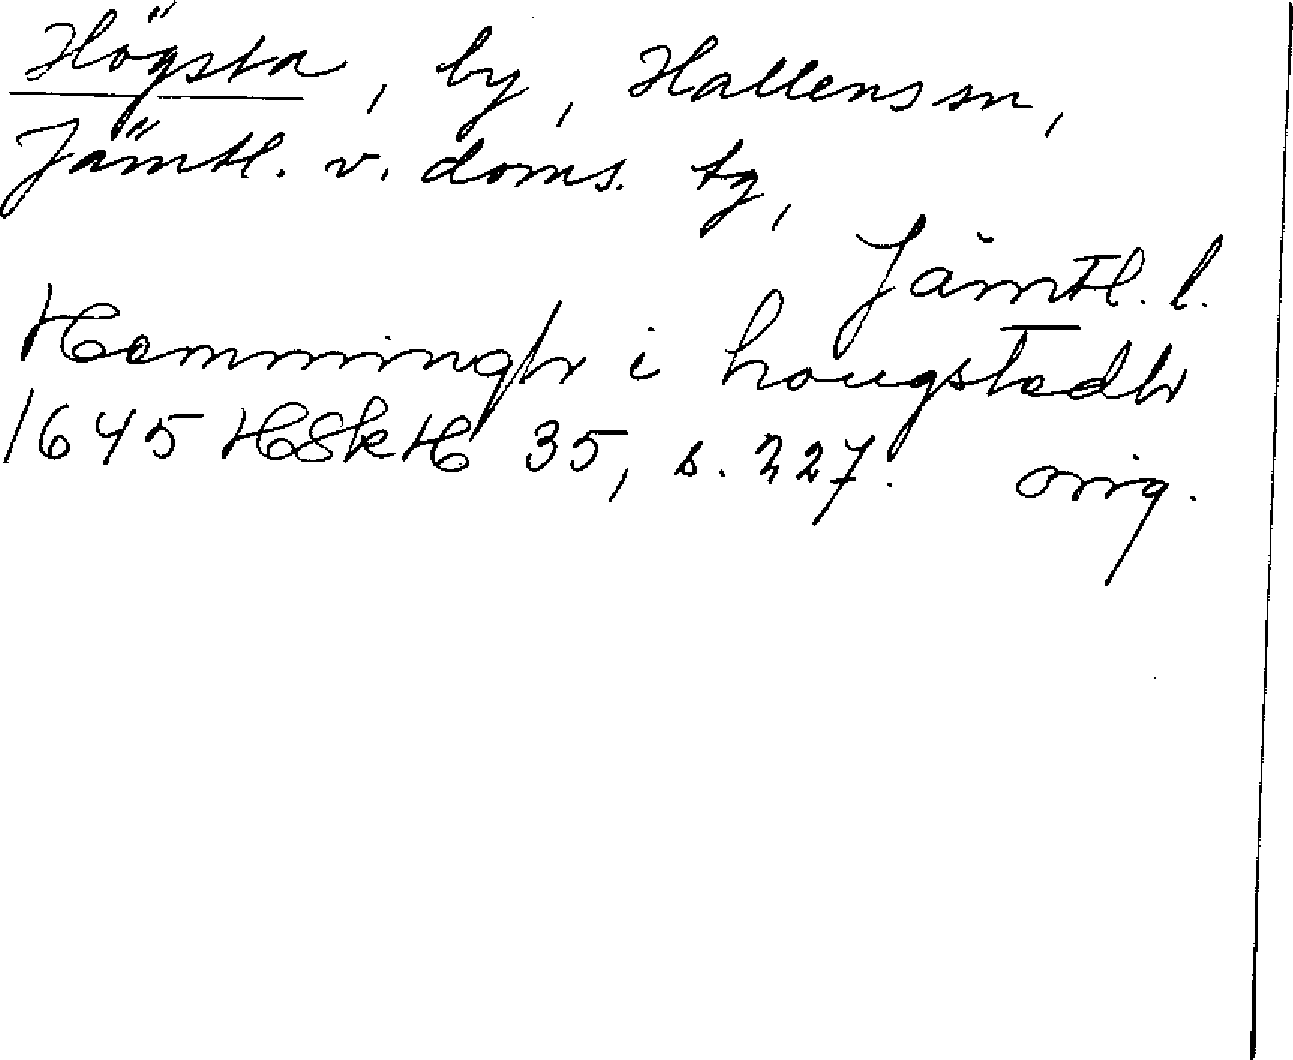 Högsta, by, Hallens sn,
Jämtl. v. doms. tg,
Jämtl. l.
Hemmingh i hougstedh
1645 HSkH 35, s. 327. orig.